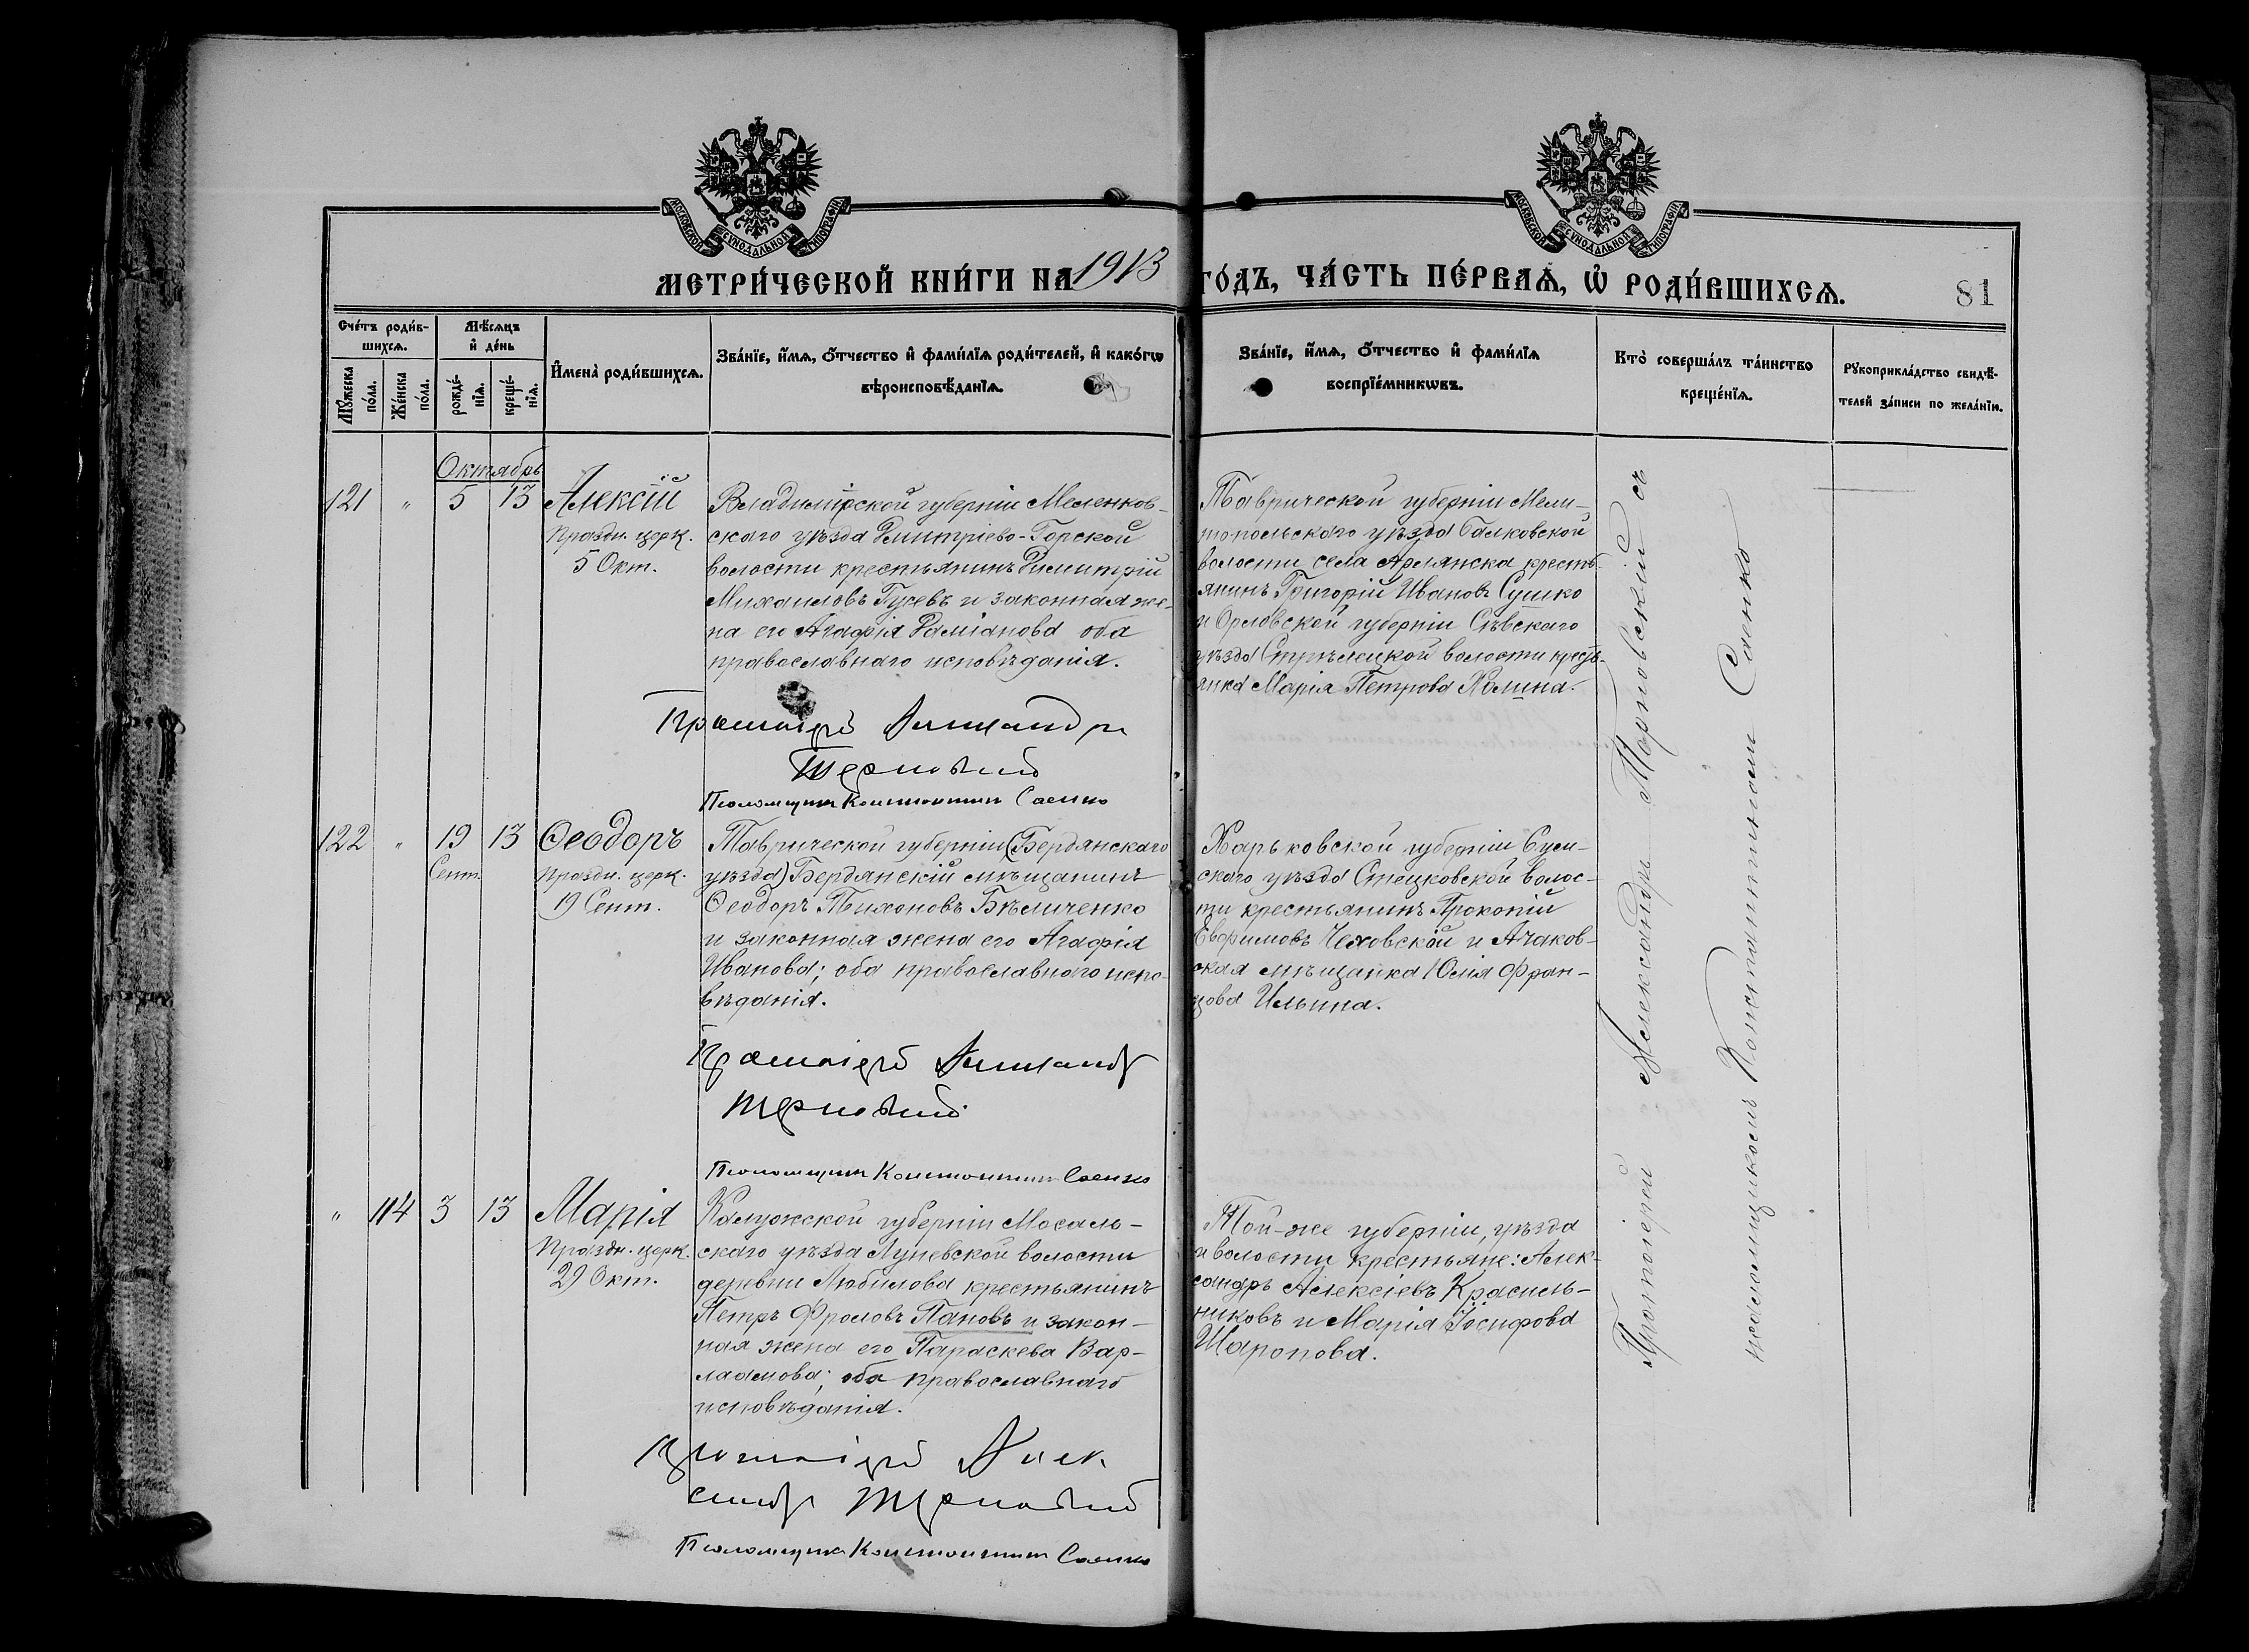 МОСКОВСКОЙ СѴНОДАЛЬНОЙ ТИПОГРАФІИ
МОСКОВСКОЙ СѴНОДАЛЬНОЙ ТИПОГРАФІИ
МЕТРИ́ЧЕСКОЙ КНИ́ГИ НА 1913 ГО́ДЪ, ЧА́СТЬ ПЕ́РВАѦ, Ѡ РОДИ́ВШИХСѦ.
81
Сче́тъ роди́в-
шихсѧ.
Мꙋ́жеска по́ла.
Же́нска по́ла.
Мѣ́сѧцъ и де́нь
рожде́-
нїѧ.
креще́-
нїѧ.
Имена̀ роди́вшихсѧ.
Зва́нїе, и́мѧ, о́тчество и фами́лїѧ роди́телей, и како́гѡ
вѣроисповѣ́данїѧ.
Зва́нїе, и́мѧ, о́тчество и фами́лїѧ
воспрїе́мникѡвъ.
Кто̀ соверша́лъ та́инство
креще́нїѧ.
Рꙋкоприкла́дство свидѣ́-
телей за́писи по жела́нїю.
Октябрь
121 " 5 13 Алексій
Праздн. церк.
5 Окт.
Владимірской губерніи Меленков-
скаго уѣзда Димитріево-Горской
волости крестьянинъ Димитрій
Михаиловъ Гусевъ и законная же-
на его Агафія Даміанова оба
православнаго исповѣданія.
Протоіерей Александръ
Терновскій
Псаломщикъ Константинъ Саенко
Таврической губерніи Мели-
топольскаго уѣзда Балковской
волости села Арлянска кресть-
янинъ Григорій Ивановъ Сушко
и Орловской губерніи Сѣвскаго
уѣзда Стрѣлецкой волости кресть-
янка Марія Петрова Холина.
122 " 19 13 Ѳеодоръ
Сент.
Праздн. церк.
19 Сент.
Таврической губерніи (Бердянскаго
уѣзда) Бердянскій мѣщанинъ
Ѳеодоръ Тихоновъ Бѣличенко
и законная жена его Агафія
Иванова; оба православнаго испо-
вѣданія.
Протоіерей Александръ
Терновскій
Псаломщикъ Константинъ Саенко
Харьковской губерніи Сум-
скаго уѣзда Стецковской волос-
ти крестьянинъ Прокопій
Евфимовъ Чеховской и Ачаков-
ская мѣщанка Юлія Фран-
цова Ильина.
" 114 3 13 Марія
Праздн. церк.
29 Окт.
Калужской губерніи Мосаль-
скаго уѣзда Луневской волости
деревни Любилова крестьянинъ
Петръ Фроловъ Пановъ и закон-
ная жена его Параскева Вар-
лаамова; оба православнаго
исповѣданія.
Протоіерей Алек
сандръ Терновскій
Псаломщикъ Константинъ Саенко
Той-же губерніи, уѣзда
и волости крестьяне: Алек-
сандръ Алексіевъ Красиль-
никовъ и Марія Іосифова
Шаропова.
Протоіерей Александръ Терновскій съ
псаломщикомъ Константиномъ Саенко